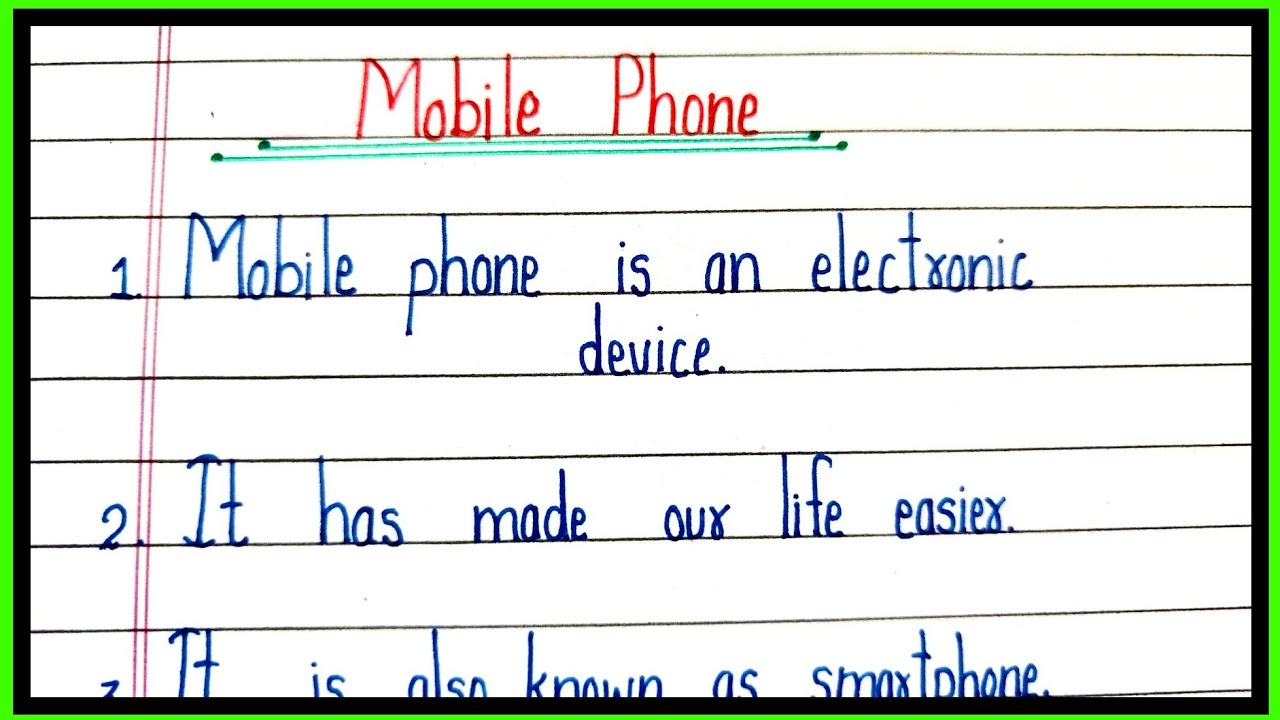 Mobile Phone
1. Mobile phone is an electronic
device.
2. It has made our life easier.
3. It is also known as smartphone.